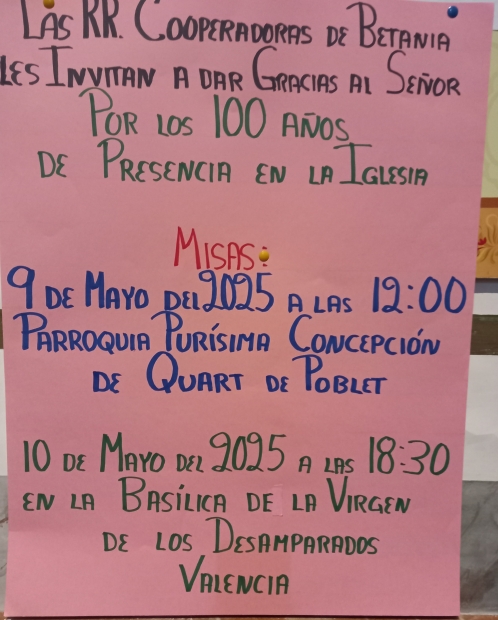 Las RR. Cooperadoras de Betania
les Invitan a dar Gracias al Señor
Por los 100 años
de Presencia en la Iglesia
Misas:
9 de Mayo del 2025 a las 12:00
Parroquia Purísima Concepción
de Quart de Poblet
10 de Mayo del 2025 a las 18:30
en la Basílica de la Virgen
de los Desamparados
Valencia